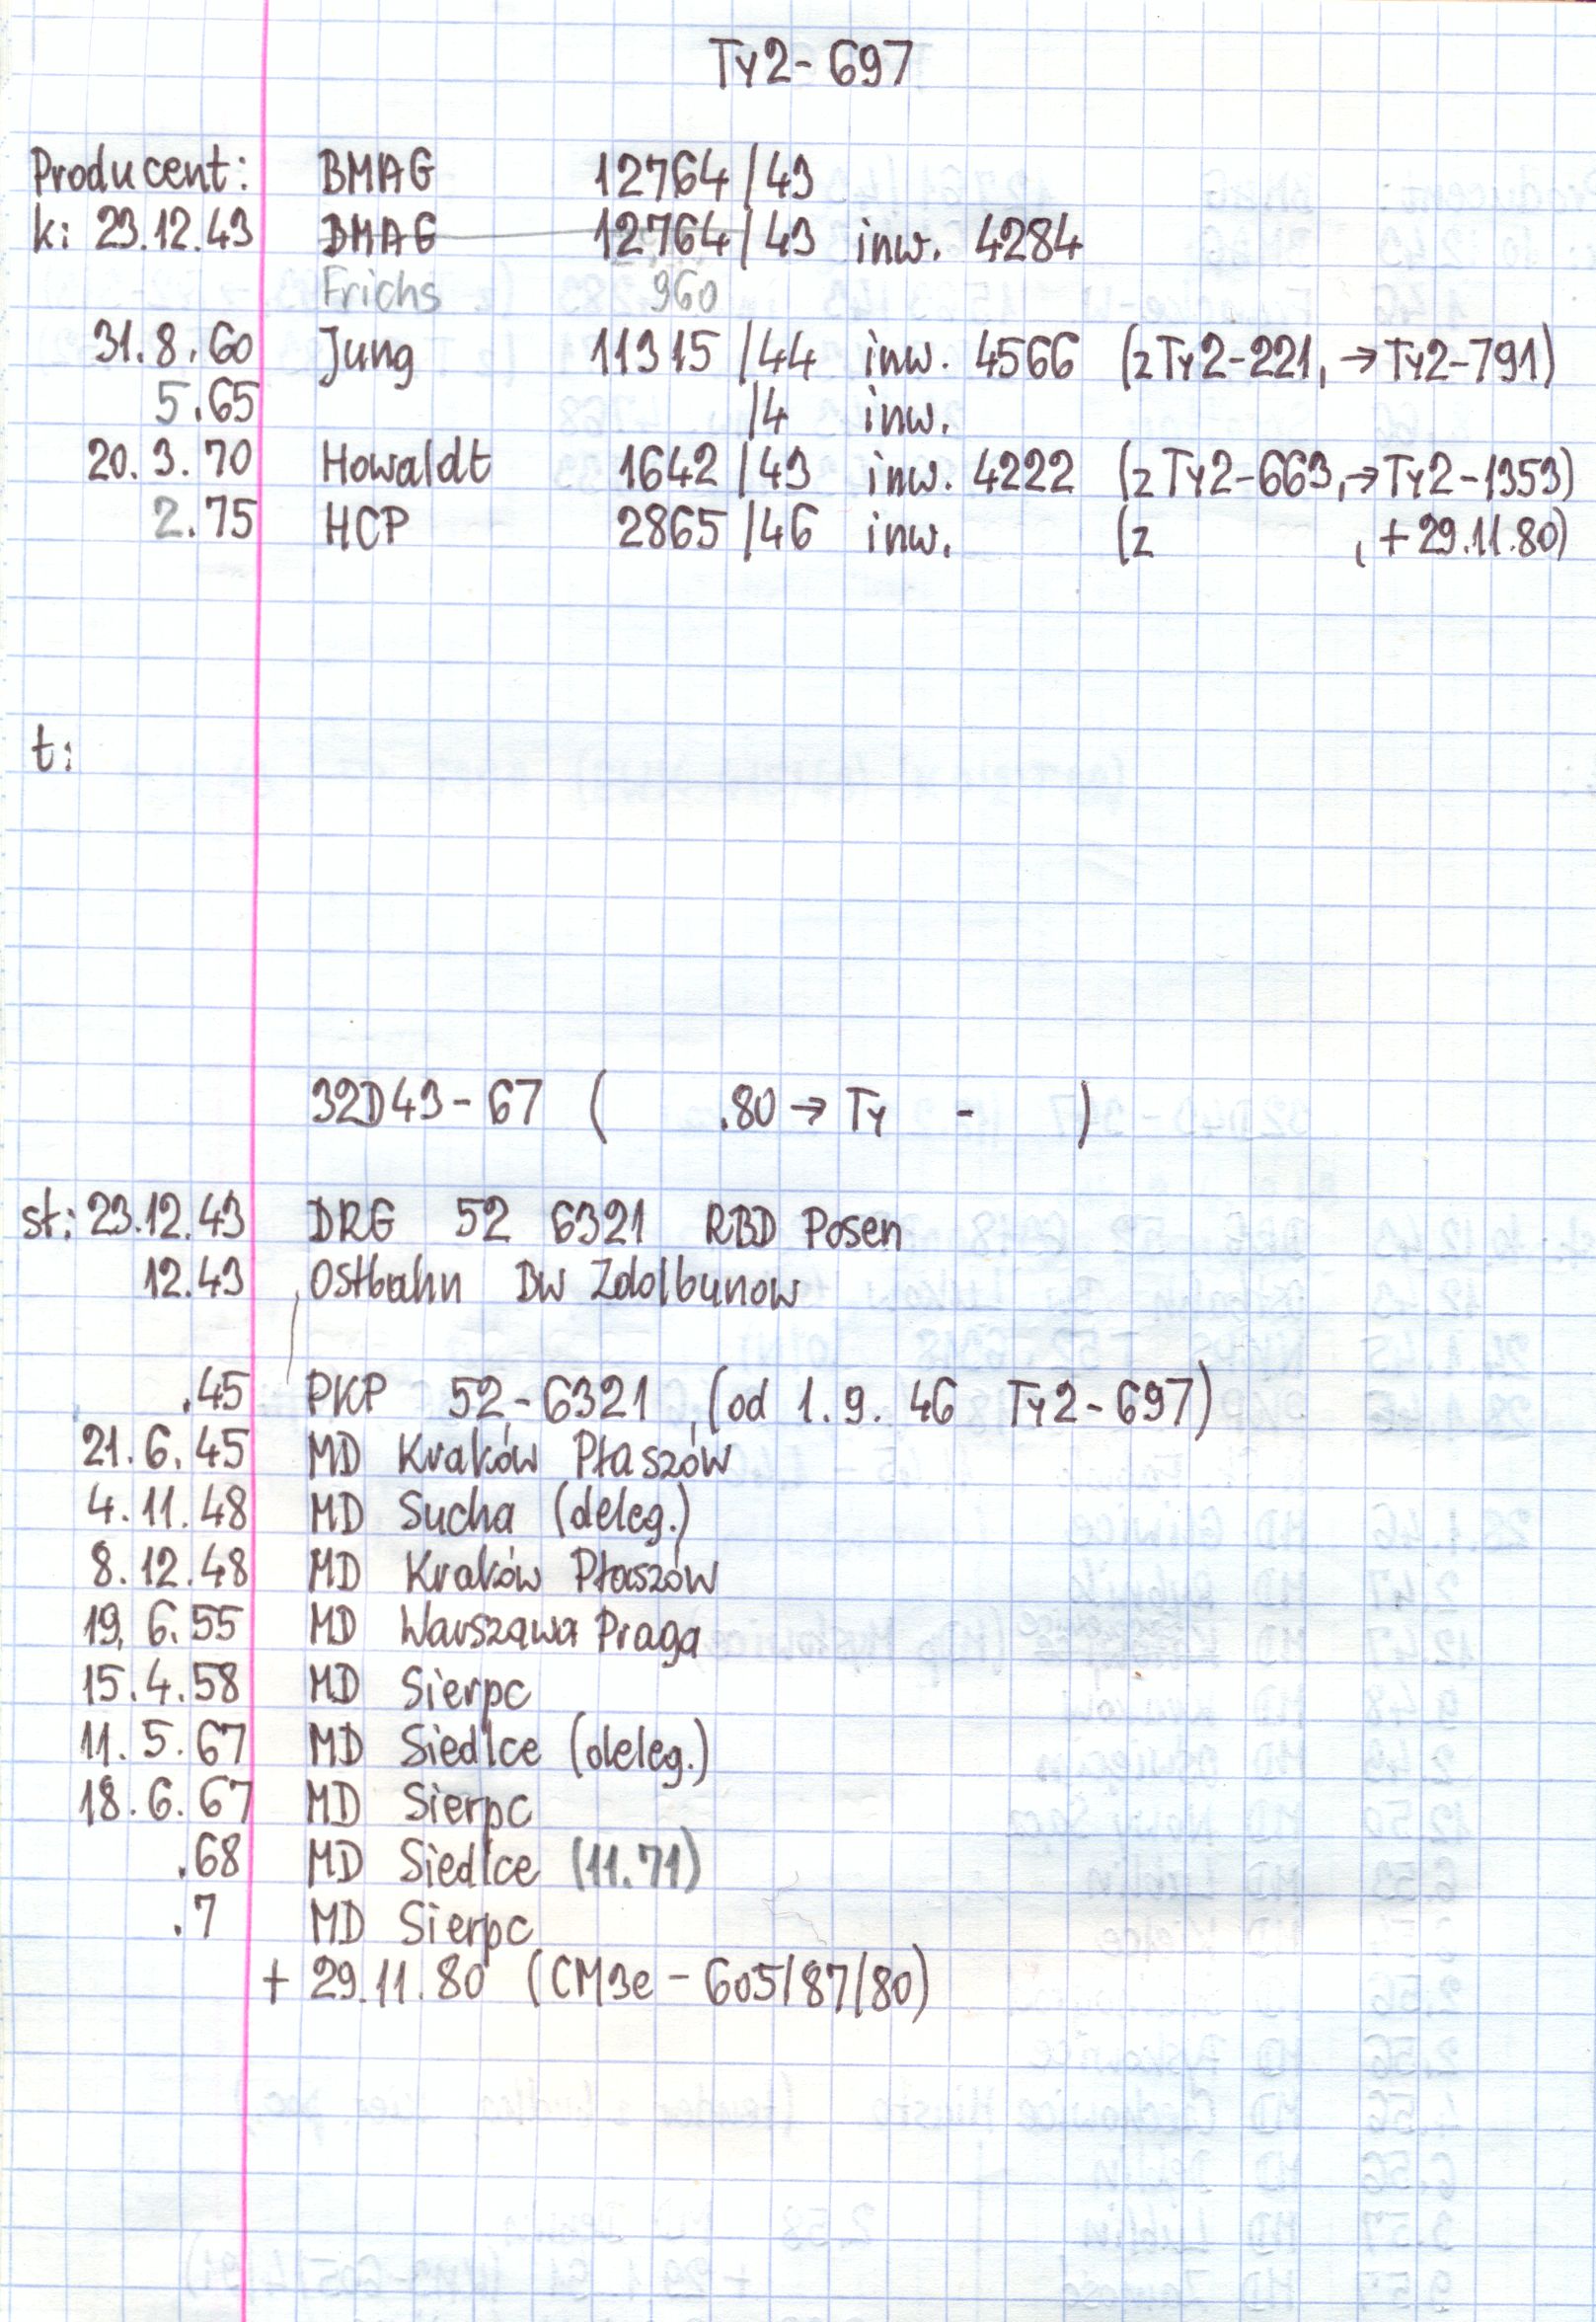 Ty2-697
Producent: BMAG 12764/43
k: 23.12.43 BMAG 12764/43 inw. 4284
Frichs 960
31.8.60 Jung 11315/44 inw. 4566 (z Ty2-221, → Ty2-791)
5.65 /4 inw.
20.3.70 Howaldt 1642/43 inw. 4222 (z Ty2-663, → Ty2-1353)
2.75 HCP 2865/46 inw. (z , + 29.11.80)
t:
32D43-67 ( .80 → Ty - )
st: 23.12.43 DRG 52 6321 RBD Posen
12.43 Ostbahn Bw Zdolbunow
.45 PKP 52-6321 (od 1.9.46 Ty2-697)
21.6.45 MD Kraków Płaszów
4.11.48 MD Sucha (deleg.)
8.12.48 MD Kraków Płaszów
19.6.55 MD Warszawa Praga
15.4.58 MD Sierpc
11.5.67 MD Siedlce (deleg.)
18.6.67 MD Sierpc
.68 MD Siedlce (11.71)
.7 MD Sierpc
+ 29.11.80 (CM3e - 605/87/80)